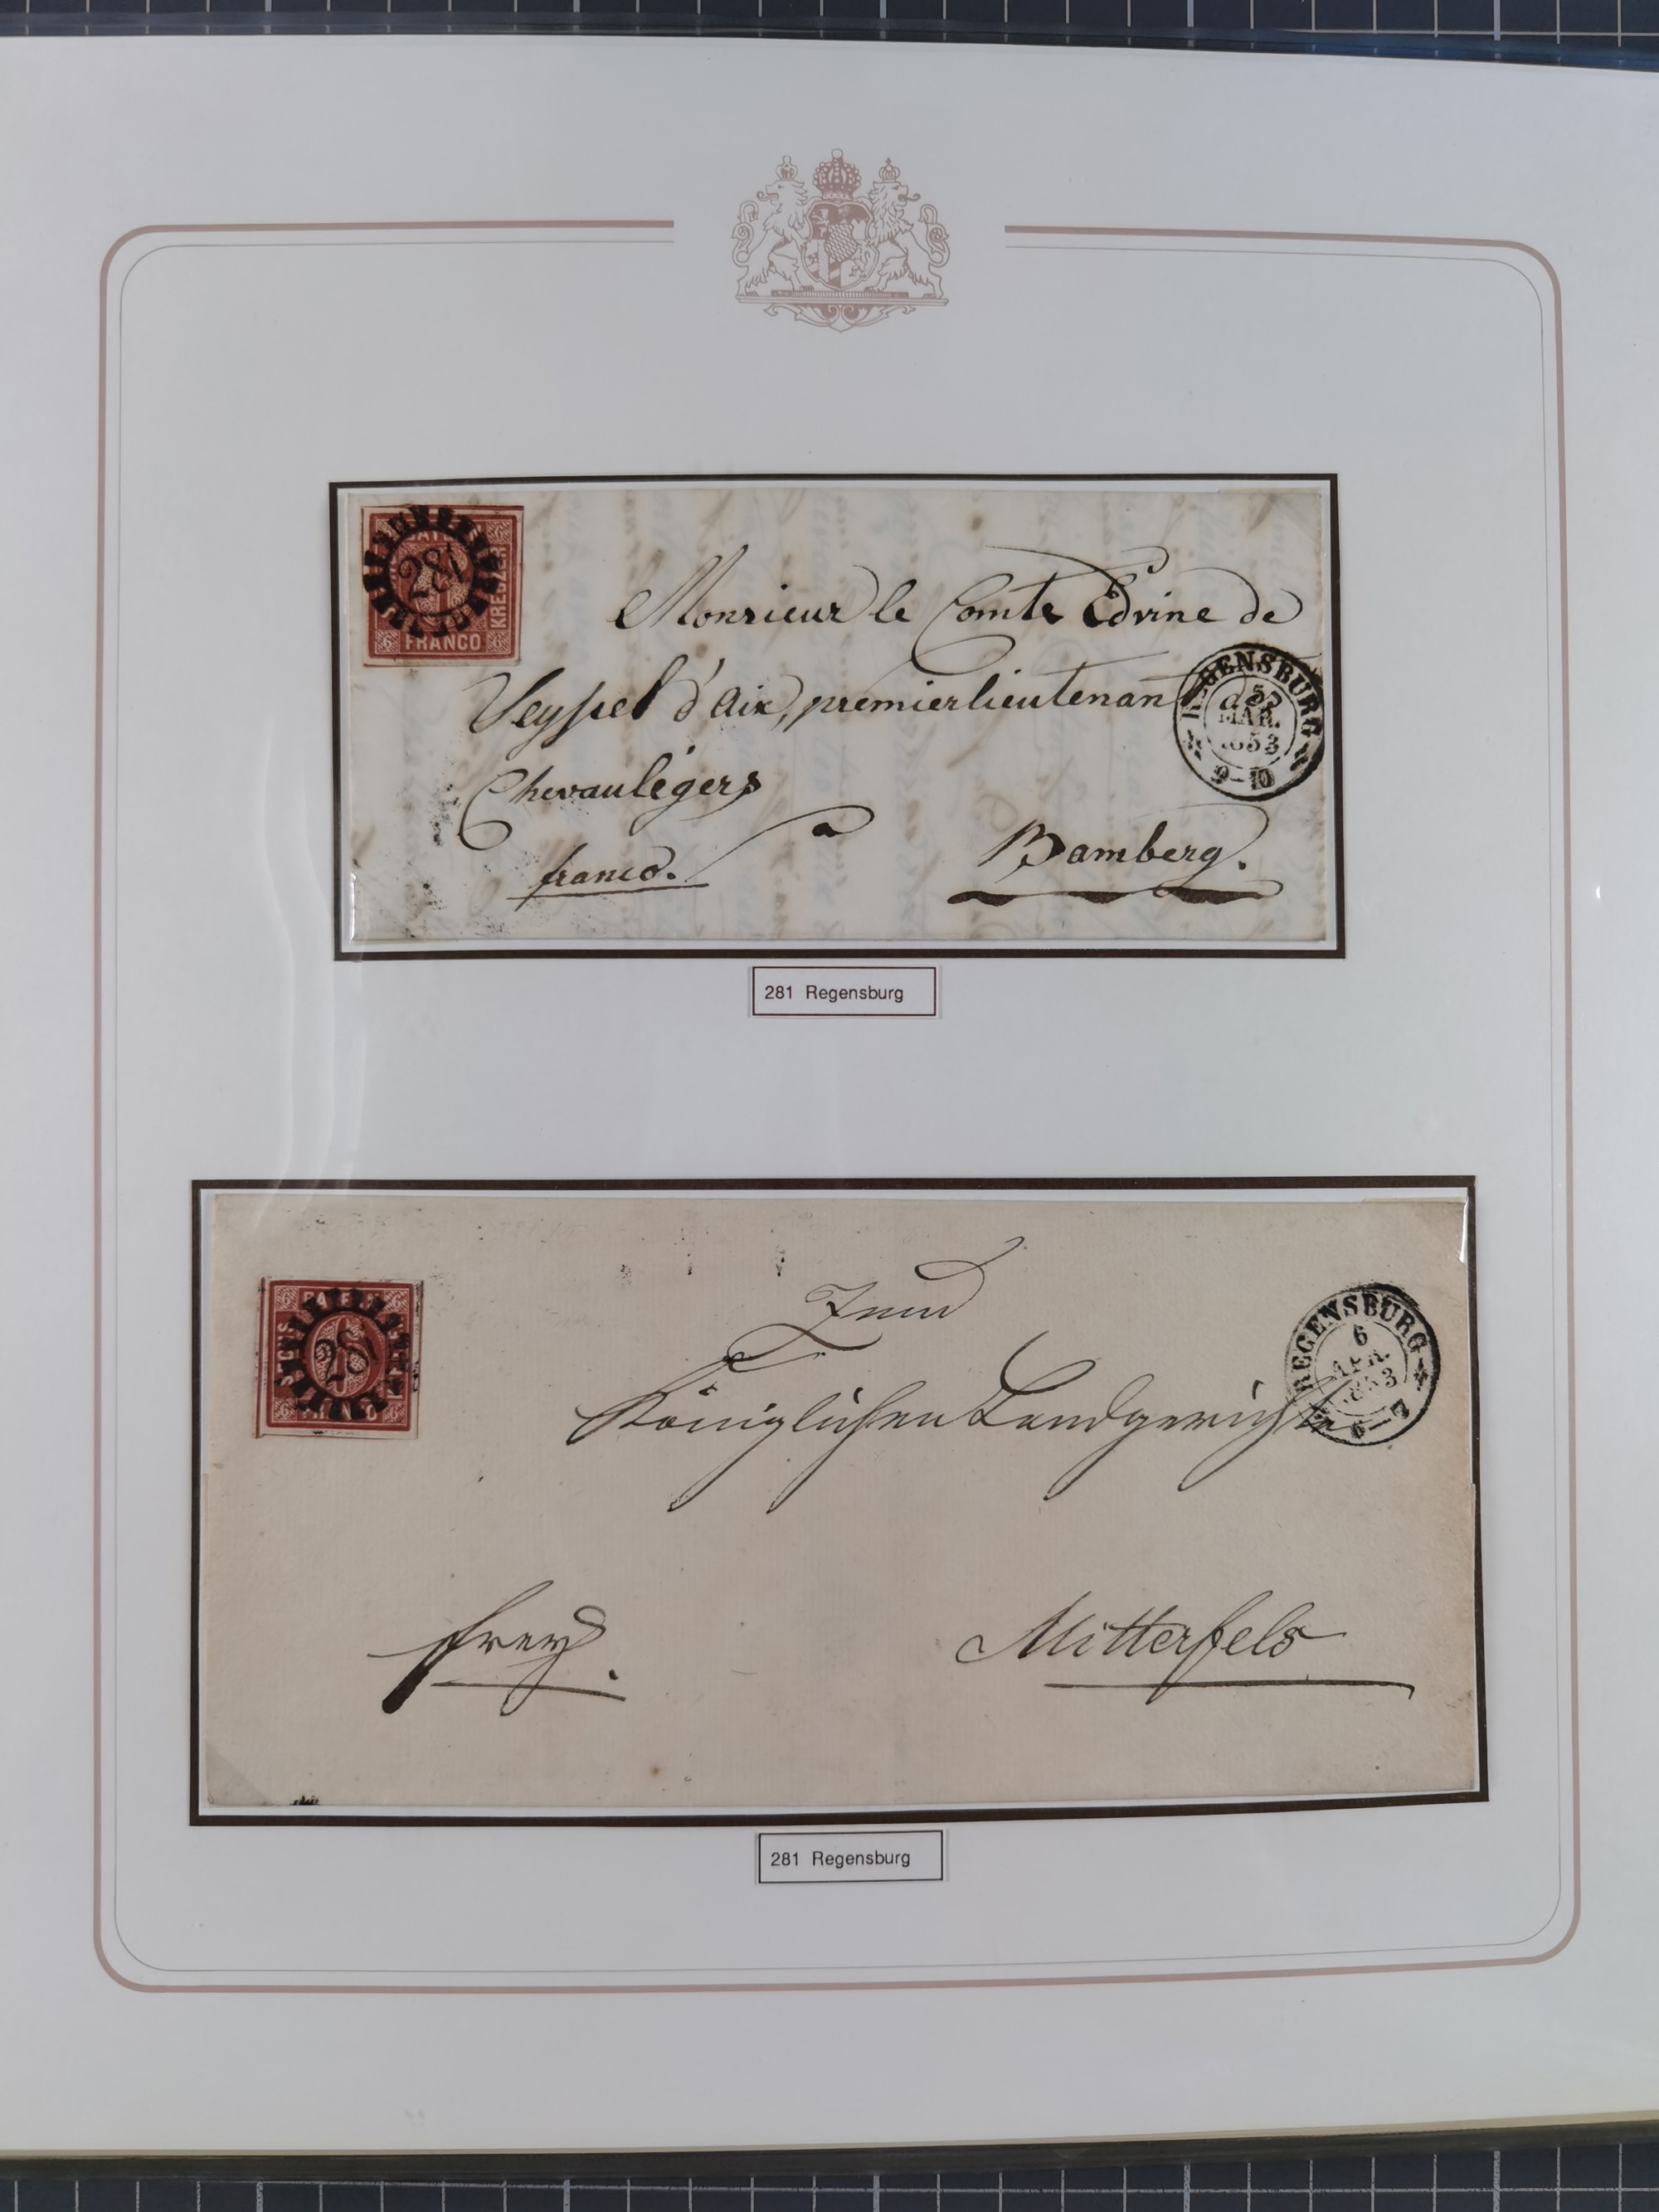 281
FRANCO
KREUZER
Monsieur le Comte Edvine de
Seyssel d'Aix, premierlieutenant
Chevaulégers
à
franco. Bamberg.
REGENSBURG
MAR.
1853
9-10
281 Regensburg
BAYERN
SECHS
281
FRANCO
Zum
Königlichen Landgerichte
REGENSBURG
6
APR.
1853
frey. Mitterfels
281 Regensburg